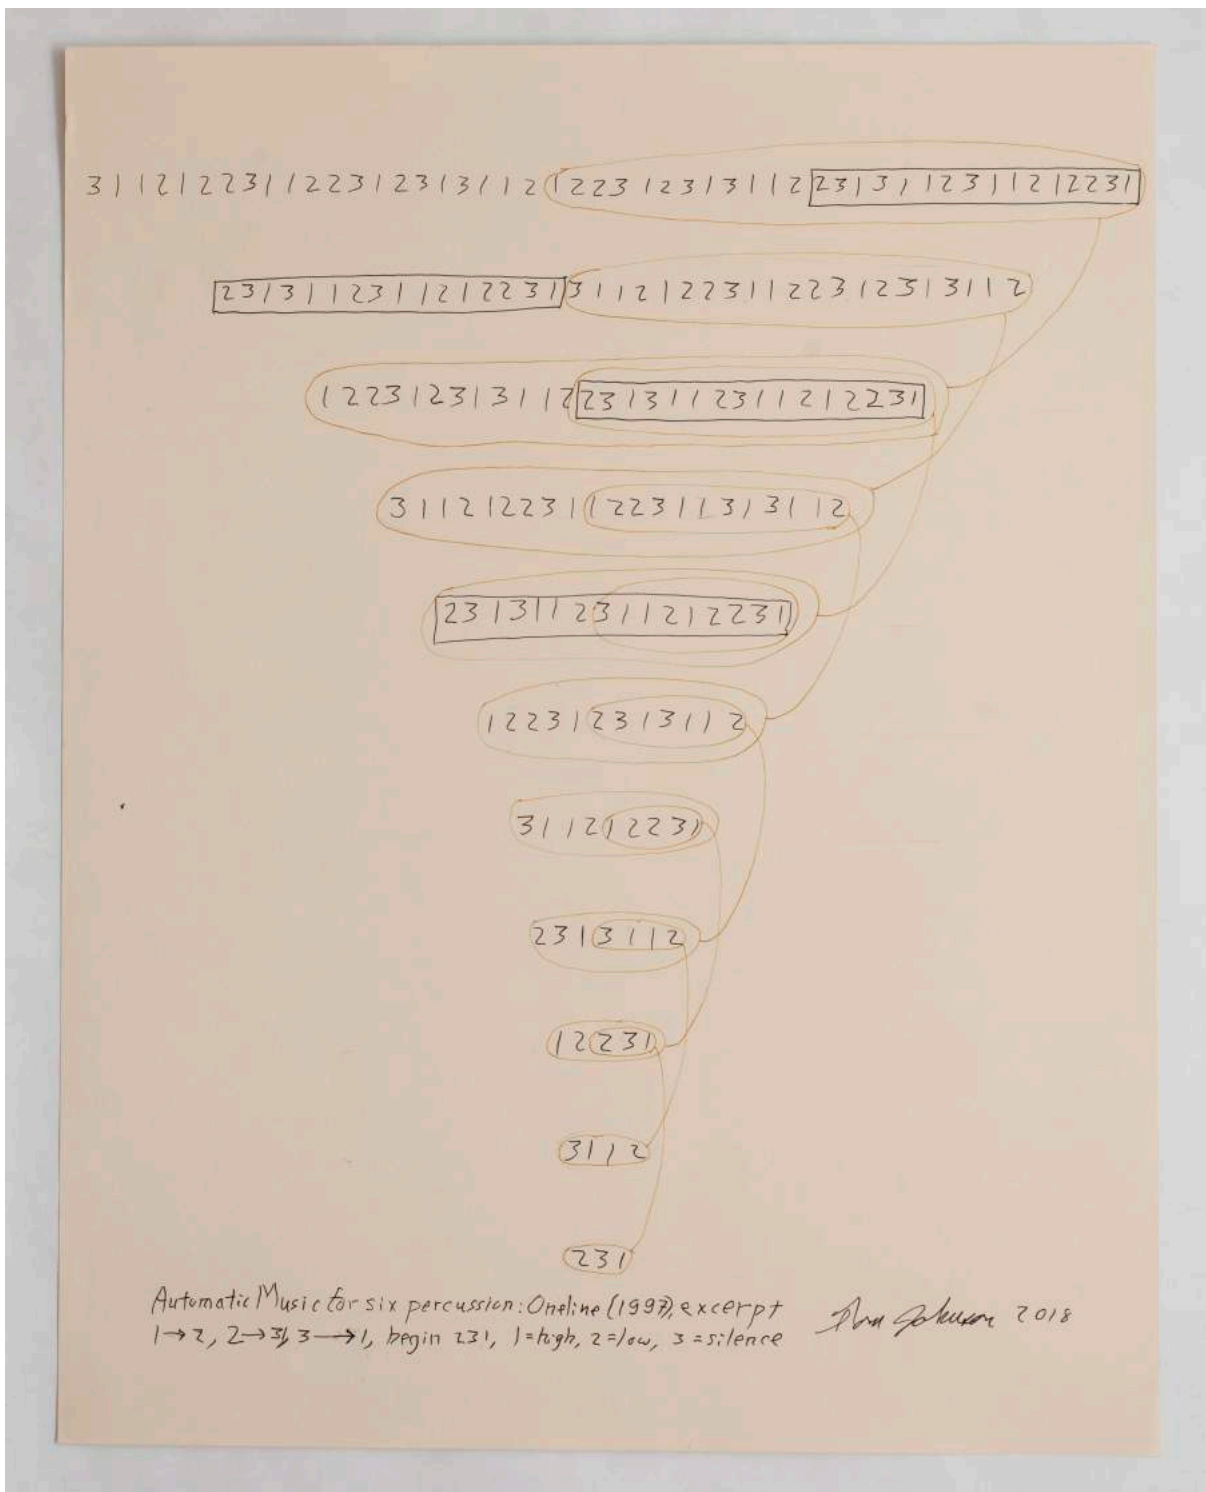 3112122311223123131121223123131122313112311212231
2313112311212231311212231122312313112
1223123131122313112311212231
311212231122311313112
2313112311212231
122312313112
311212231
2313112
12231
3112
231
Automatic Music for six percussion: Oneline (1997), excerpt
1→2, 2→3, 3→1, begin 231, 1=high, 2=low, 3=silence
Tom Johnson 2018